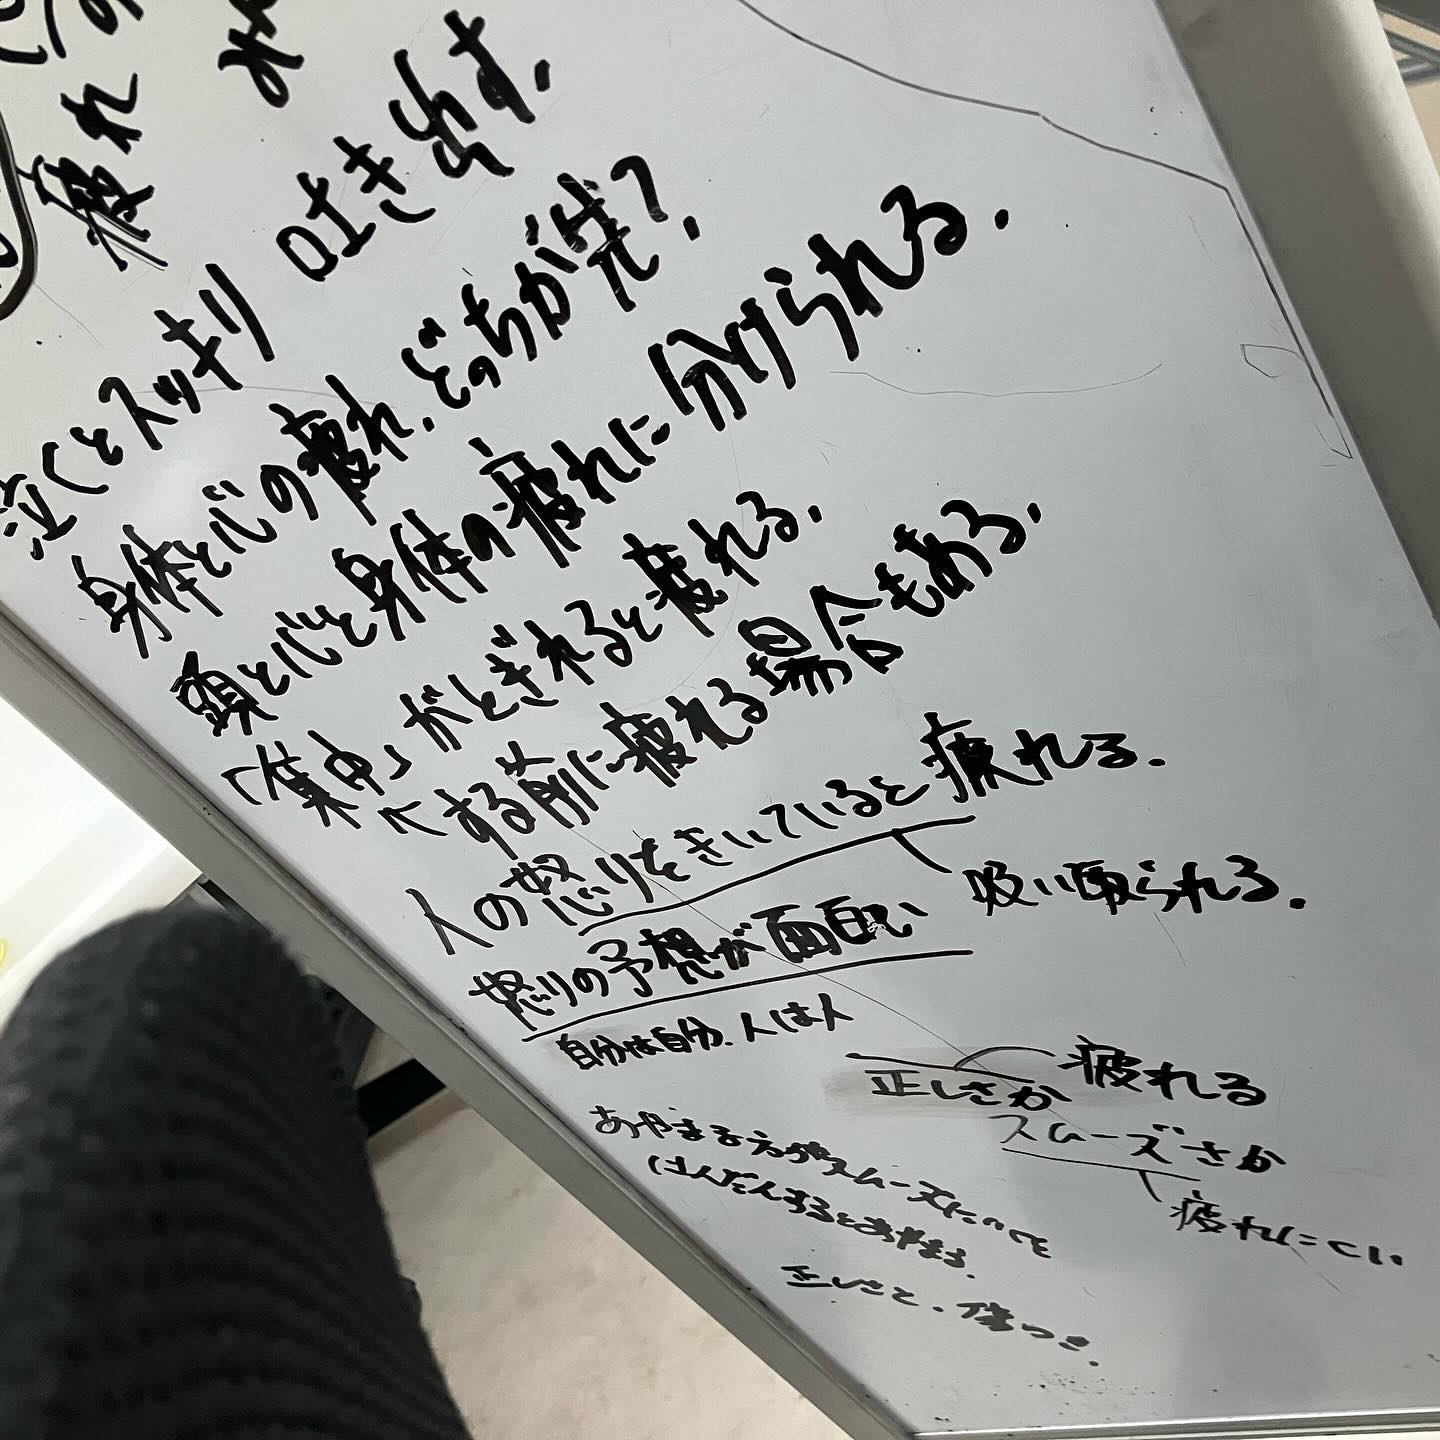 疲れ
泣くとスッキリ 吐き出す.
身体と心の疲れ.どっちが先?.
頭と心と身体の疲れに分けられる.
「集中」がとぎれると疲れる.
する前に疲れる場合もある.
人の怒りをきいていると疲れる.
吸い取られる.
怒りの予想が面白い
自分は自分.人は人
正しさか 疲れる
スムーズさか
疲れにくい
あやまる方がスムーズにいくと
はんだんするとあやまる.
正しさと.傷つき.